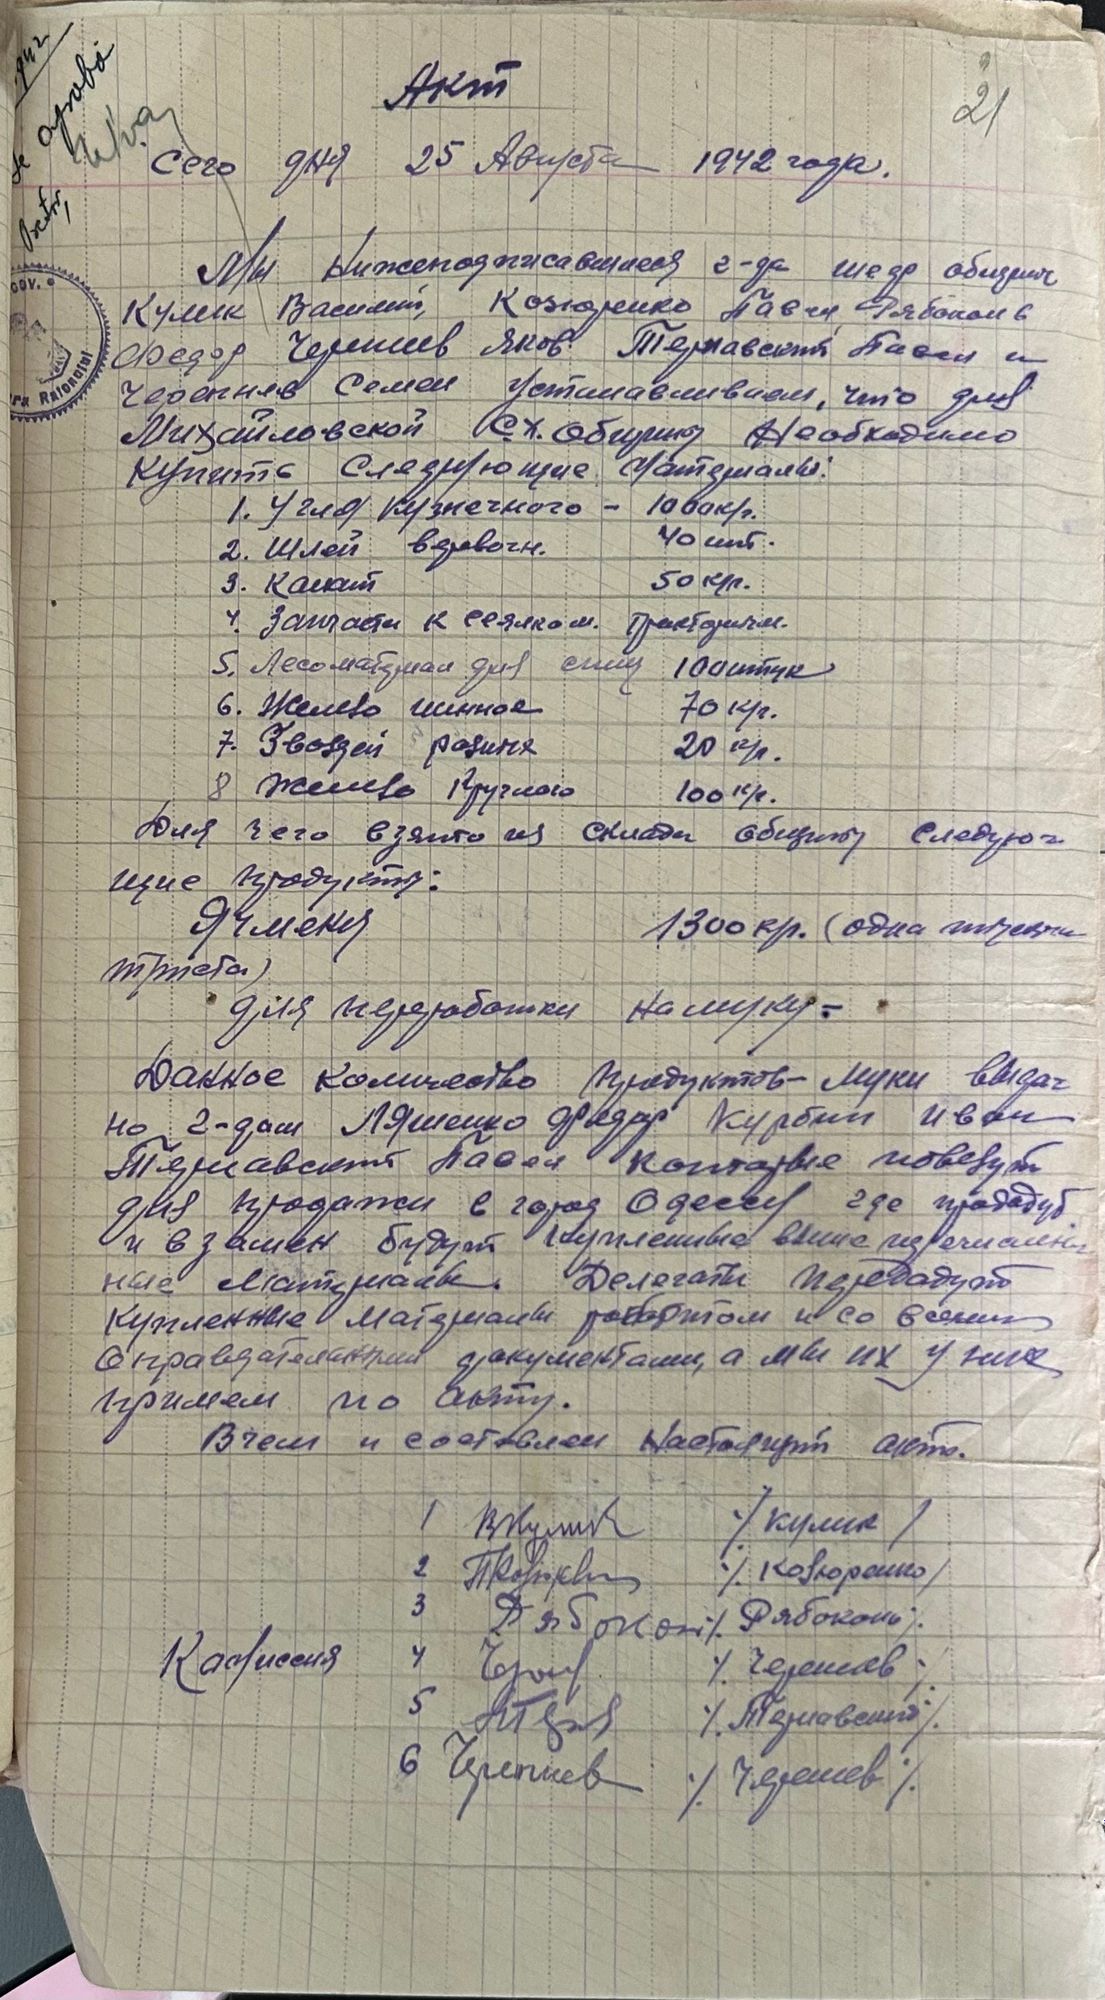 21
Акт
Сего дня 25 Августа 1942 года.
Мы Нижеподписавшиеся г-да шефр общины
Кулик Василий, Козюренко Павел, Рябоконь
Федор Черешнев Яков Тернавский Павел и
Черешнев Семен Устанавливаем, что для
Михайловской С.Х. Общины Необходимо
Купить Следующие Материалы:
1. Угля Кузнечного - 1000 кгр.
2. Шлей веревочн. 40 шт.
3. Канат 50 кгр.
4. Запчасти к сеялкам. Тракторным.
5. Лесоматериал для спиц 100 штук
6. Железо шинное 70 кгр.
7. Гвоздей разных 20 кгр.
8 Железо Круглого 100 кгр.
Для чего взято из склада общины следую-
щие продукты:
Ячменя 1300 кгр. (одна тысяча
триста)
для переработки на муку. -
Данное количество продуктов - муки выдан
но г-дам Ляшенко Федор Курбан Иван
Тернавский Павел которые повезут
для продажи в город Одессу где продадут
и взамен будут купленные выше перечислен
ные материалы. Делегаты передадут
купленные материалы с со всеми
оправдательными документами, а мы их у них
примем по акту.
В чем и составлен настоящий акт.
1 ВКулик /Кулик/
2 /Козюренко/
3 Рябоконь /Рябоконь/
Комиссия 4 /Черешнев/
5 /Тернавский/
6 Черешнев /Черешнев/
GOV.
Raională